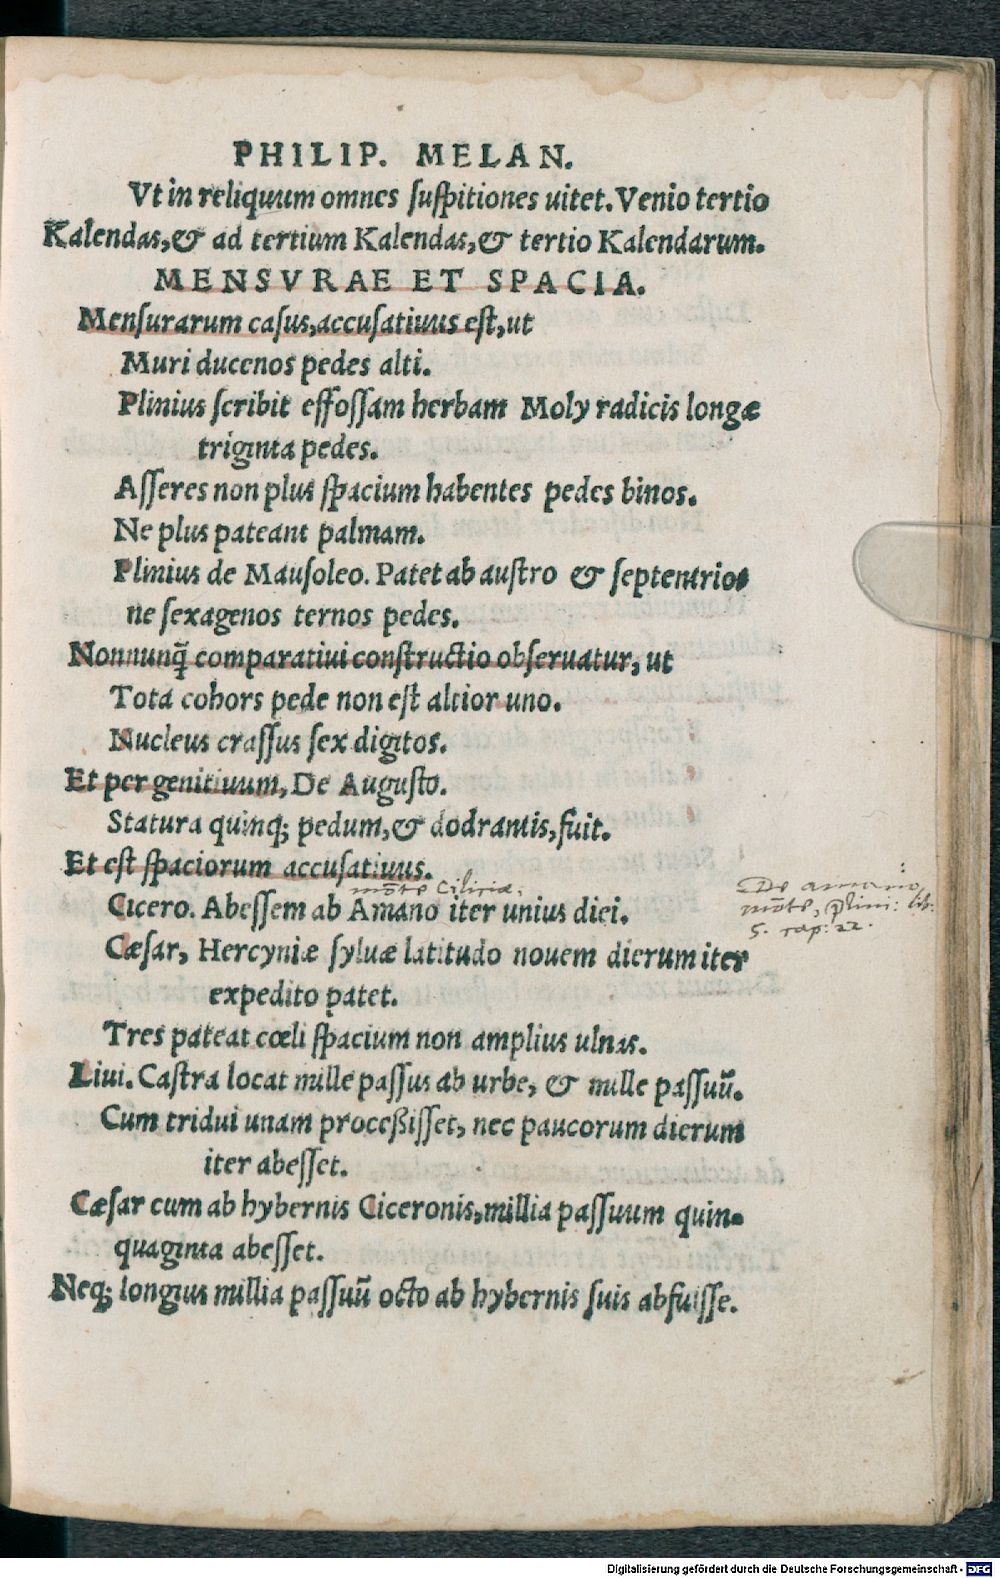 PHILIP. MELAN.
Vt in reliquum omnes suspitiones uitet. Venio tertio
Kalendas, & ad tertium Kalendas, & tertio Kalendarum.
MENSVRAE ET SPACIA.
Mensurarum casus, accusatiuus est, ut
Muri ducenos pedes alti.
Plinius scribit effossam herbam Moly radicis longæ
triginta pedes.
Asseres non plus spacium habentes pedes binos.
Ne plus pateant palmam.
Plinius de Mausoleo. Patet ab austro & septentrio-
ne sexagenos ternos pedes.
Nonnunq̃ comparatiui constructio obseruatur, ut
Tota cohors pede non est altior uno.
Nucleus crassus sex digitos.
Et per genitiuum, De Augusto.
Statura quinq; pedum, & dodrantis, fuit.
Et est spaciorum accusatiuus.
mōte Ciliciæ,
Cicero. Abessem ab Amano iter unius diei.
De amano,
mōte, plini: lib:
5. cap: 22.
Cæsar, Hercyniæ syluæ latitudo nouem dierum iter
expedito patet.
Tres pateat cœli spacium non amplius ulnas.
Liui. Castra locat mille passus ab urbe, & mille passuū.
Cum tridui unam processisset, nec paucorum dierum
iter abesset.
Cæsar cum ab hybernis Ciceronis, millia passuum quin-
quaginta abesset.
Neq; longius millia passuū octo ab hybernis suis abfuisse.
Digitalisierung gefördert durch die Deutsche Forschungsgemeinschaft - DFG